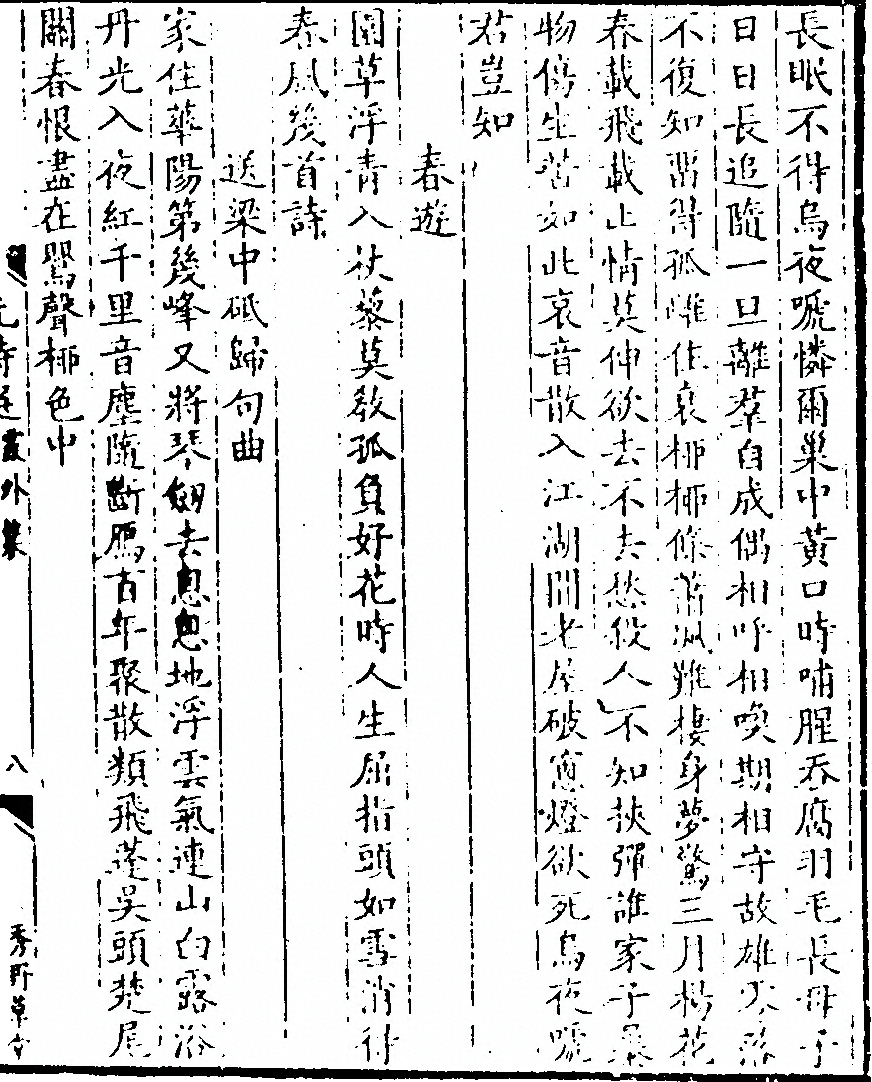 長眠不得烏夜嗁憐爾巢中黃口時哺腥吞腐羽毛長母子
日日長追隨一旦離羣自成偶相呼相喚期相守故雄零落
不復知留得孤雌住衰柳柳條蕭洲難棲身夢驚三月楊花
春載飛載止情莫伸欲去不去愁殺人不知挾彈誰家子暴
物傷生苦如此哀音散入江湖間老屋破窻燈欲死烏夜嗁
君豈知
春遊
園草浮青入杖藜莫教孤負好花時人生屈指頭如雪消得
春風幾首詩
送梁中砥歸句曲
家住華陽第幾峰又將琴劒去悤悤地浮雲氣連山白露浴
丹光入夜紅千里音塵隨斷鴈百年聚散類飛蓬吳頭楚尾
關春恨盡在鶯聲柳色中
元詩選 霞外集
八
秀野草堂